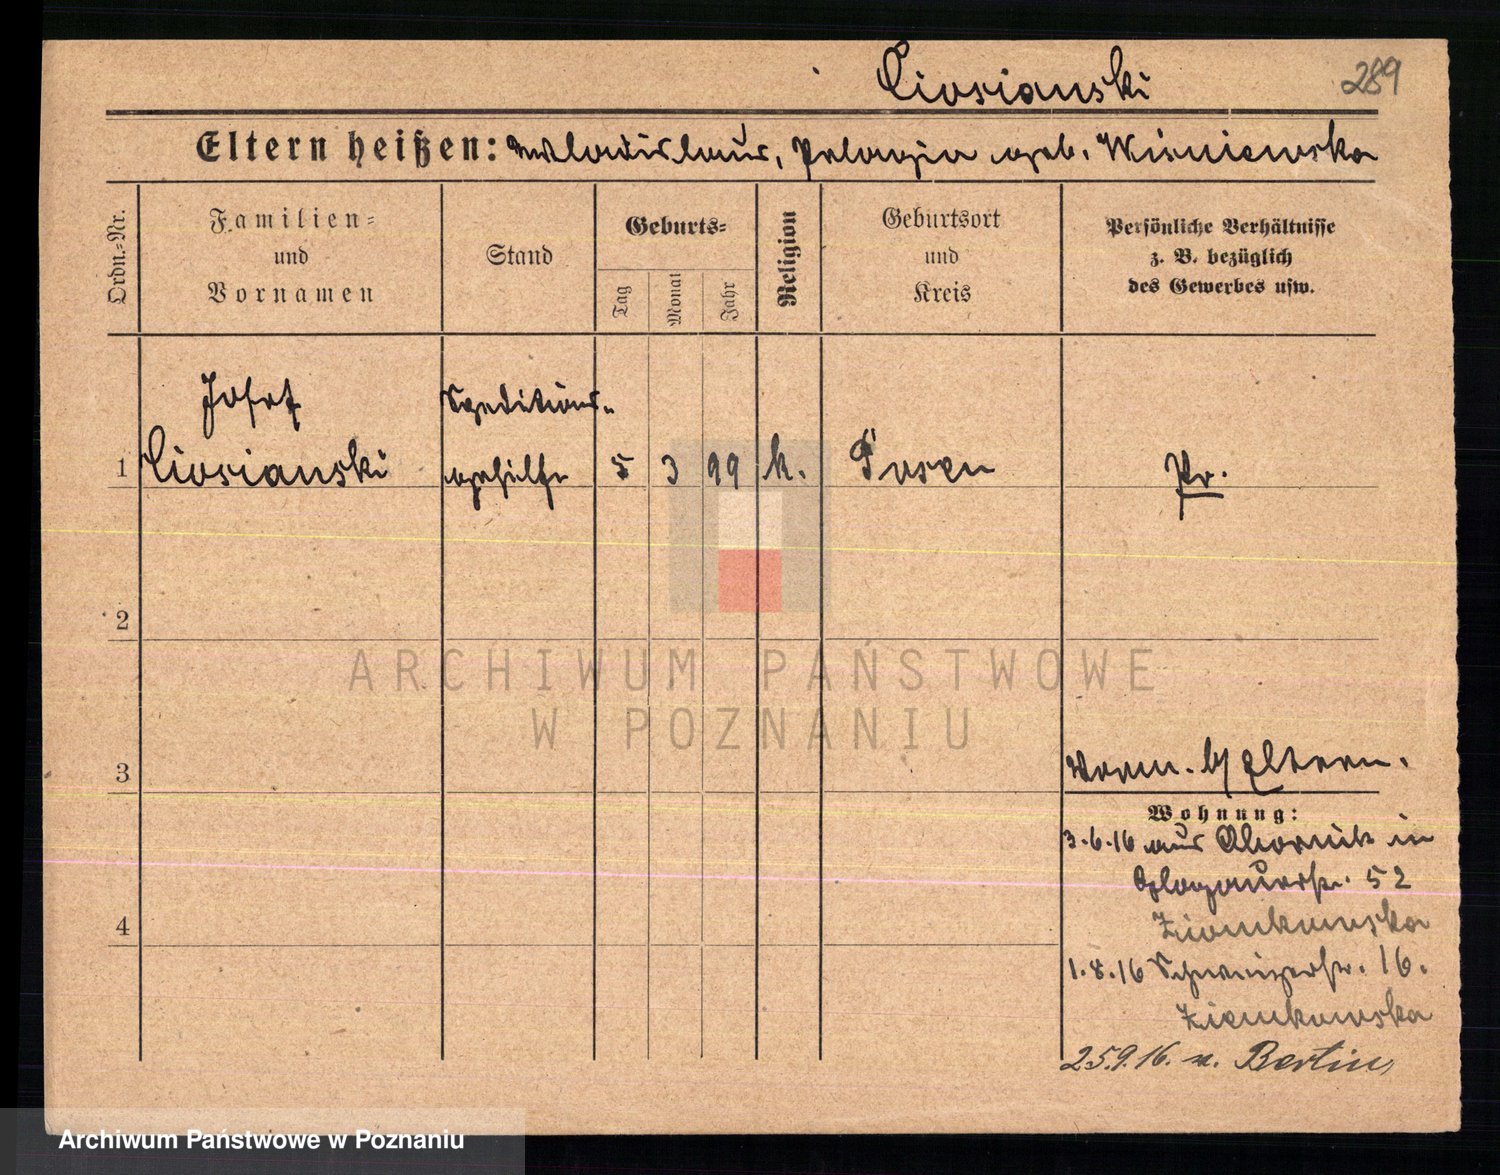 Ciosianski
289
Eltern heißen: Wladislaus, Pelagia geb. Wisniewska
Ordn.-Nr.
Familien-
und
Vornamen
Stand
Geburts-
Tag
Monat
Jahr
Religion
Geburtsort
und
Kreis
Persönliche Verhältnisse
z. B. bezüglich
des Gewerbes usw.
Josef
Speditions-
1 Ciosianski gehilfe 5 3 99 k. Posen Pr.
2
ARCHIWUM PAŃSTWOWE
W POZNANIU
3
Vorm. b/ Eltern.
Wohnung:
3.6.16 aus Obornik in
Glogauerstr. 52
Ziemkowska
4
1.8.16 Schweizerstr. 16.
Ziemkowska
25.9.16. n. Berlin
Archiwum Państwowe w Poznaniu